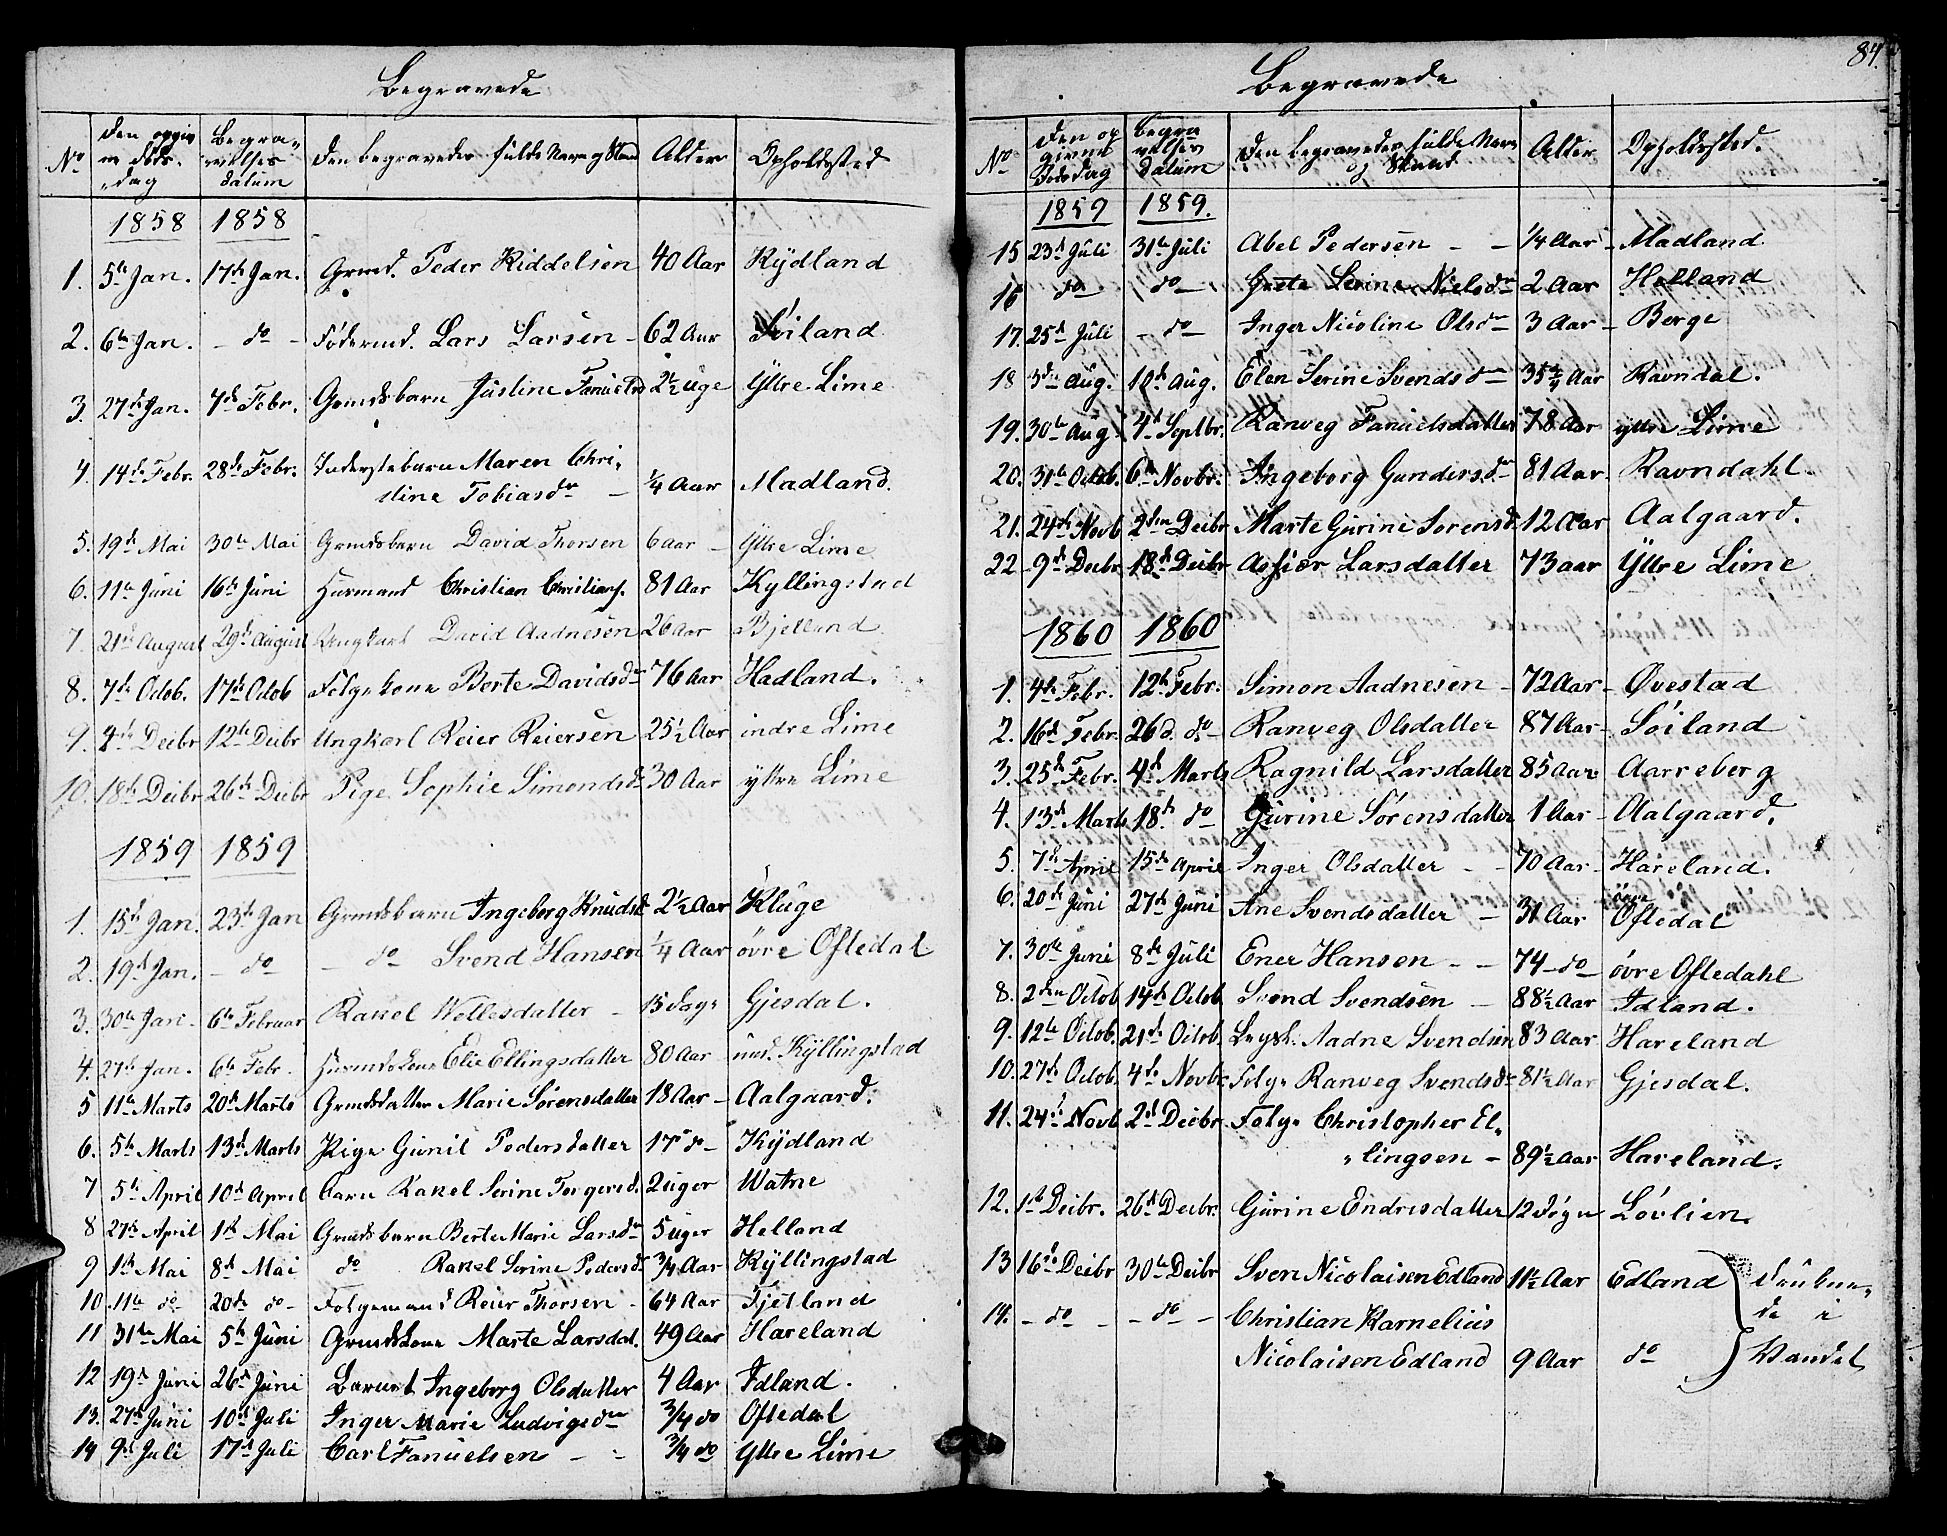 Begravede
No | Den opgivne Døds-dag | Begravelses datum | Den begravedes fulde Navn og Stand | Alder | Opholdssted
1858 | 1858
1. | 5te Jan. | 17de Jan. | Grmd. Peder Kiddelsen | 40 Aar | Kÿdland
2. | 6te Jan. | - do - | Fødermd. Lars Larsen - | 62 Aar | Söiland
3. | 27de Jan. | 7de Febr. | Grmdsbarn Justine Fanuelsd | 2½ uge | Yttre Lime
4. | 14de Febr. | 28de Febr. | Inderstebarn Maren Chri-
stine Tobiasdr - | ¼ Aar | Madland.
5. | 19de Mai | 30te Mai | Grmdsbarn David Thorsen | 6 aar - | Yttre Lime
6. | 11te Juni | 16de Juni | Huusmand Christian Christians. | 81 Aar | Kyllingstad
7. | 21de August | 29de August | Ungkarl David Aadnesen | 26 Aar | Bjelland
8. | 7de Octob. | 17de Octob | Folgekone Berte Davidsdr | 76 Aar | Hadland.
9. | 4de Decbr | 12te Decbr | Ungkarl Reier Reiersen | 25½ Aar | indre Lime
10. | 18de Decbr | 26de Decbr | Pige Sophie Simondsdr | 30 Aar | yttre Lime
1859 | 1859
1. | 15de Jan. | 23de Jan | Grmdsbarn Ingeborg Knudsd | 2½ Aar | Kluge
2. | 19de Jan. | - do | - do Svend Hansen | ¼ Aar | övre Oftedal
3. | 30te Jan. | 6te Februar | Rakel Wellesdatter - | 15 dage | Gjesdal.
4. | 27de Jan. | 6te Febr. | Huusmdskone Elie Ellingsdatter | 80 Aar | und. Kÿllingstad
5 | 11te Marts | 20de Marts | Grmdsdatter Marie Sørensdatter | 18 Aar - | Aalgaard.
6. | 5te Marts | 13de Marts | Pige Gunil Pedersdatter | 17 do - | Kÿdland
7 | 5te April | 10de April | barn Rakel Serine Torgersd. | 2 uger | Watne
8 | 27de April | 1ste Mai | Grmdsbarn Berte Marie Larsdr | 5 uger | Helland
9 | 1ste Mai | 8de Mai | do Rakel Serine Pedersd | ¾ Aar | Kÿllingstad
10 | 11te do | 20de do - | Folgemand Reier Thorsen - | 64 Aar | Fjetland
11 | 31te Mai | 5te Juni | Grmdskone Marte Larsdat. | 49 Aar | Hareland
12 | 19de Juni | 26de Juni | Barnet Ingeborg Olsdatter | 4 Aar | Idland.
13. | 27de Juni | 10de Juli | Inger Marie Ludvigsdr | ¾ do | Oftedal
14 | 9de Juli | 17de Juli | Carl Fanuelsen - - | ¾ do | Yttre Lime
84.
Begravede
No | Den opgivne Dødsdag | Begravelses datum | Den begravedes fulde Navn og Stand | Alder | Opholdssted.
1859 | 1859.
15 | 23de Juli | 31te Juli | Abel Pedersen - - | ¼ Aar - | Madland
16 | do - | do - | Grete Serine Nielsdr | 2 Aar | Helland
17. | 25de Juli | - do - | Inger Nicoline Olsdr | 3 Aar - | Berge
18 | 3die Aug. | 10de Aug. | Elen Serine Svendsdr | 35 Aar | Ravndal.
19. | 30te Aug. | 4de Septbr. | Ranveg Fanuelsdatter | 78 Aar | yttre Lime
20. | 31te Octob. | 6te Novbr. | Ingeborg Gundersdr | 81 Aar. | Ravndahl.
21. | 24de Novb | 2den Decbr | Marte Gurine Sorensd. | 12 Aar | Aalgaard.
22 | 9de Decbr | 18de Decbr | Assier Larsdatter | 73 aar | Yttre Lime
1860 | 1860
1. | 4de Febr. | 12te Febr. | Simon Aadnesen - | 72 Aar - | Øvestad
2. | 16de Febr. | 26 d. do - | Ranveg Olsdatter | 87 Aar - | Söiland
3. | 25de Febr. | 4de Marts | Ragnild Larsdatter | 85 Aar | Aarreberg
4. | 13de Marts | 18de do | Gurine Sörensdatter | 1 Aar - | Aalgaard.
5. | 7de April | 15de April | Inger Olsdatter - - | 70 Aar - | Hareland.
6. | 20de Juni | 27de Juni | Ane Svendsdatter - | 31 Aar | övre
Oftedal
7. | 30te Juni | 8de Juli | Ener Hansen - - | 74 - do - | övre Oftedahl
8. | 2den Octob | 14de Octob. | Svend Svendsen - | 88½ Aar | Idland.
9. | 12te Octob. | 21de Octob. | Aadne Svendsen | 83 Aar | Hareland
10. | 27de Octob. | 4de Novbr. | Folge Ranveg Svendsdr | 81½ Aar | Gjesdal.
11. | 24de Novb | 2de Decbr | Folge Christopher El-
lingsen - | 89½ Aar | Hareland.
12. | 1ste Decbr. | 26de Decbr. | Gurine Endresdatter | 12 dage | Lövlien.
13 | 16de Decbr | 30te Decbr | Sven Nicolaisen Edland | 11½ Aar | Edland | Druknede i Vandet
14. | - do - | - do - | Christian Karnelius
Nicolaisen Edland | 9 Aar | do